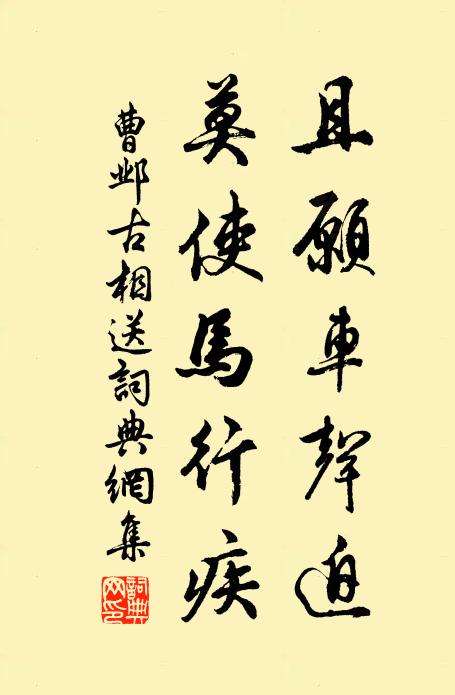 且願車聲迫
莫使馬行疾
曹邺古相送詞典網集
詞典
网印